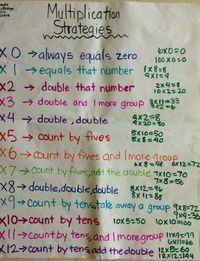 Multiplication
Strategies
X 0 → always equals zero 6X0=0
100X0=0
X 1 → equals that number 1X8=8
9X1=9
X 2 → double that number 2X4=8
10X2=20
X 3 → double and 1 more group 3X11=33
X 4 → double, double 4X2=8
4X20=80
X5 → count by fives 5X10=50
5X8=40
X6 → count by fives and 1 more group
6X8=48 6X12=72
X7 → count by fives, add the double 7X10=70
7X8=56
X8 → double, double, double 8X12=96
8X11=88
X9 → count by tens take away a group 9X8=72
9X4=36
X10→ count by tens 10X5=50 10X10=100
X11→ count by tens, and 1 more group 11X9=99
6X11=66
X12→ count by tens add the double 12X5=60
12X12=144